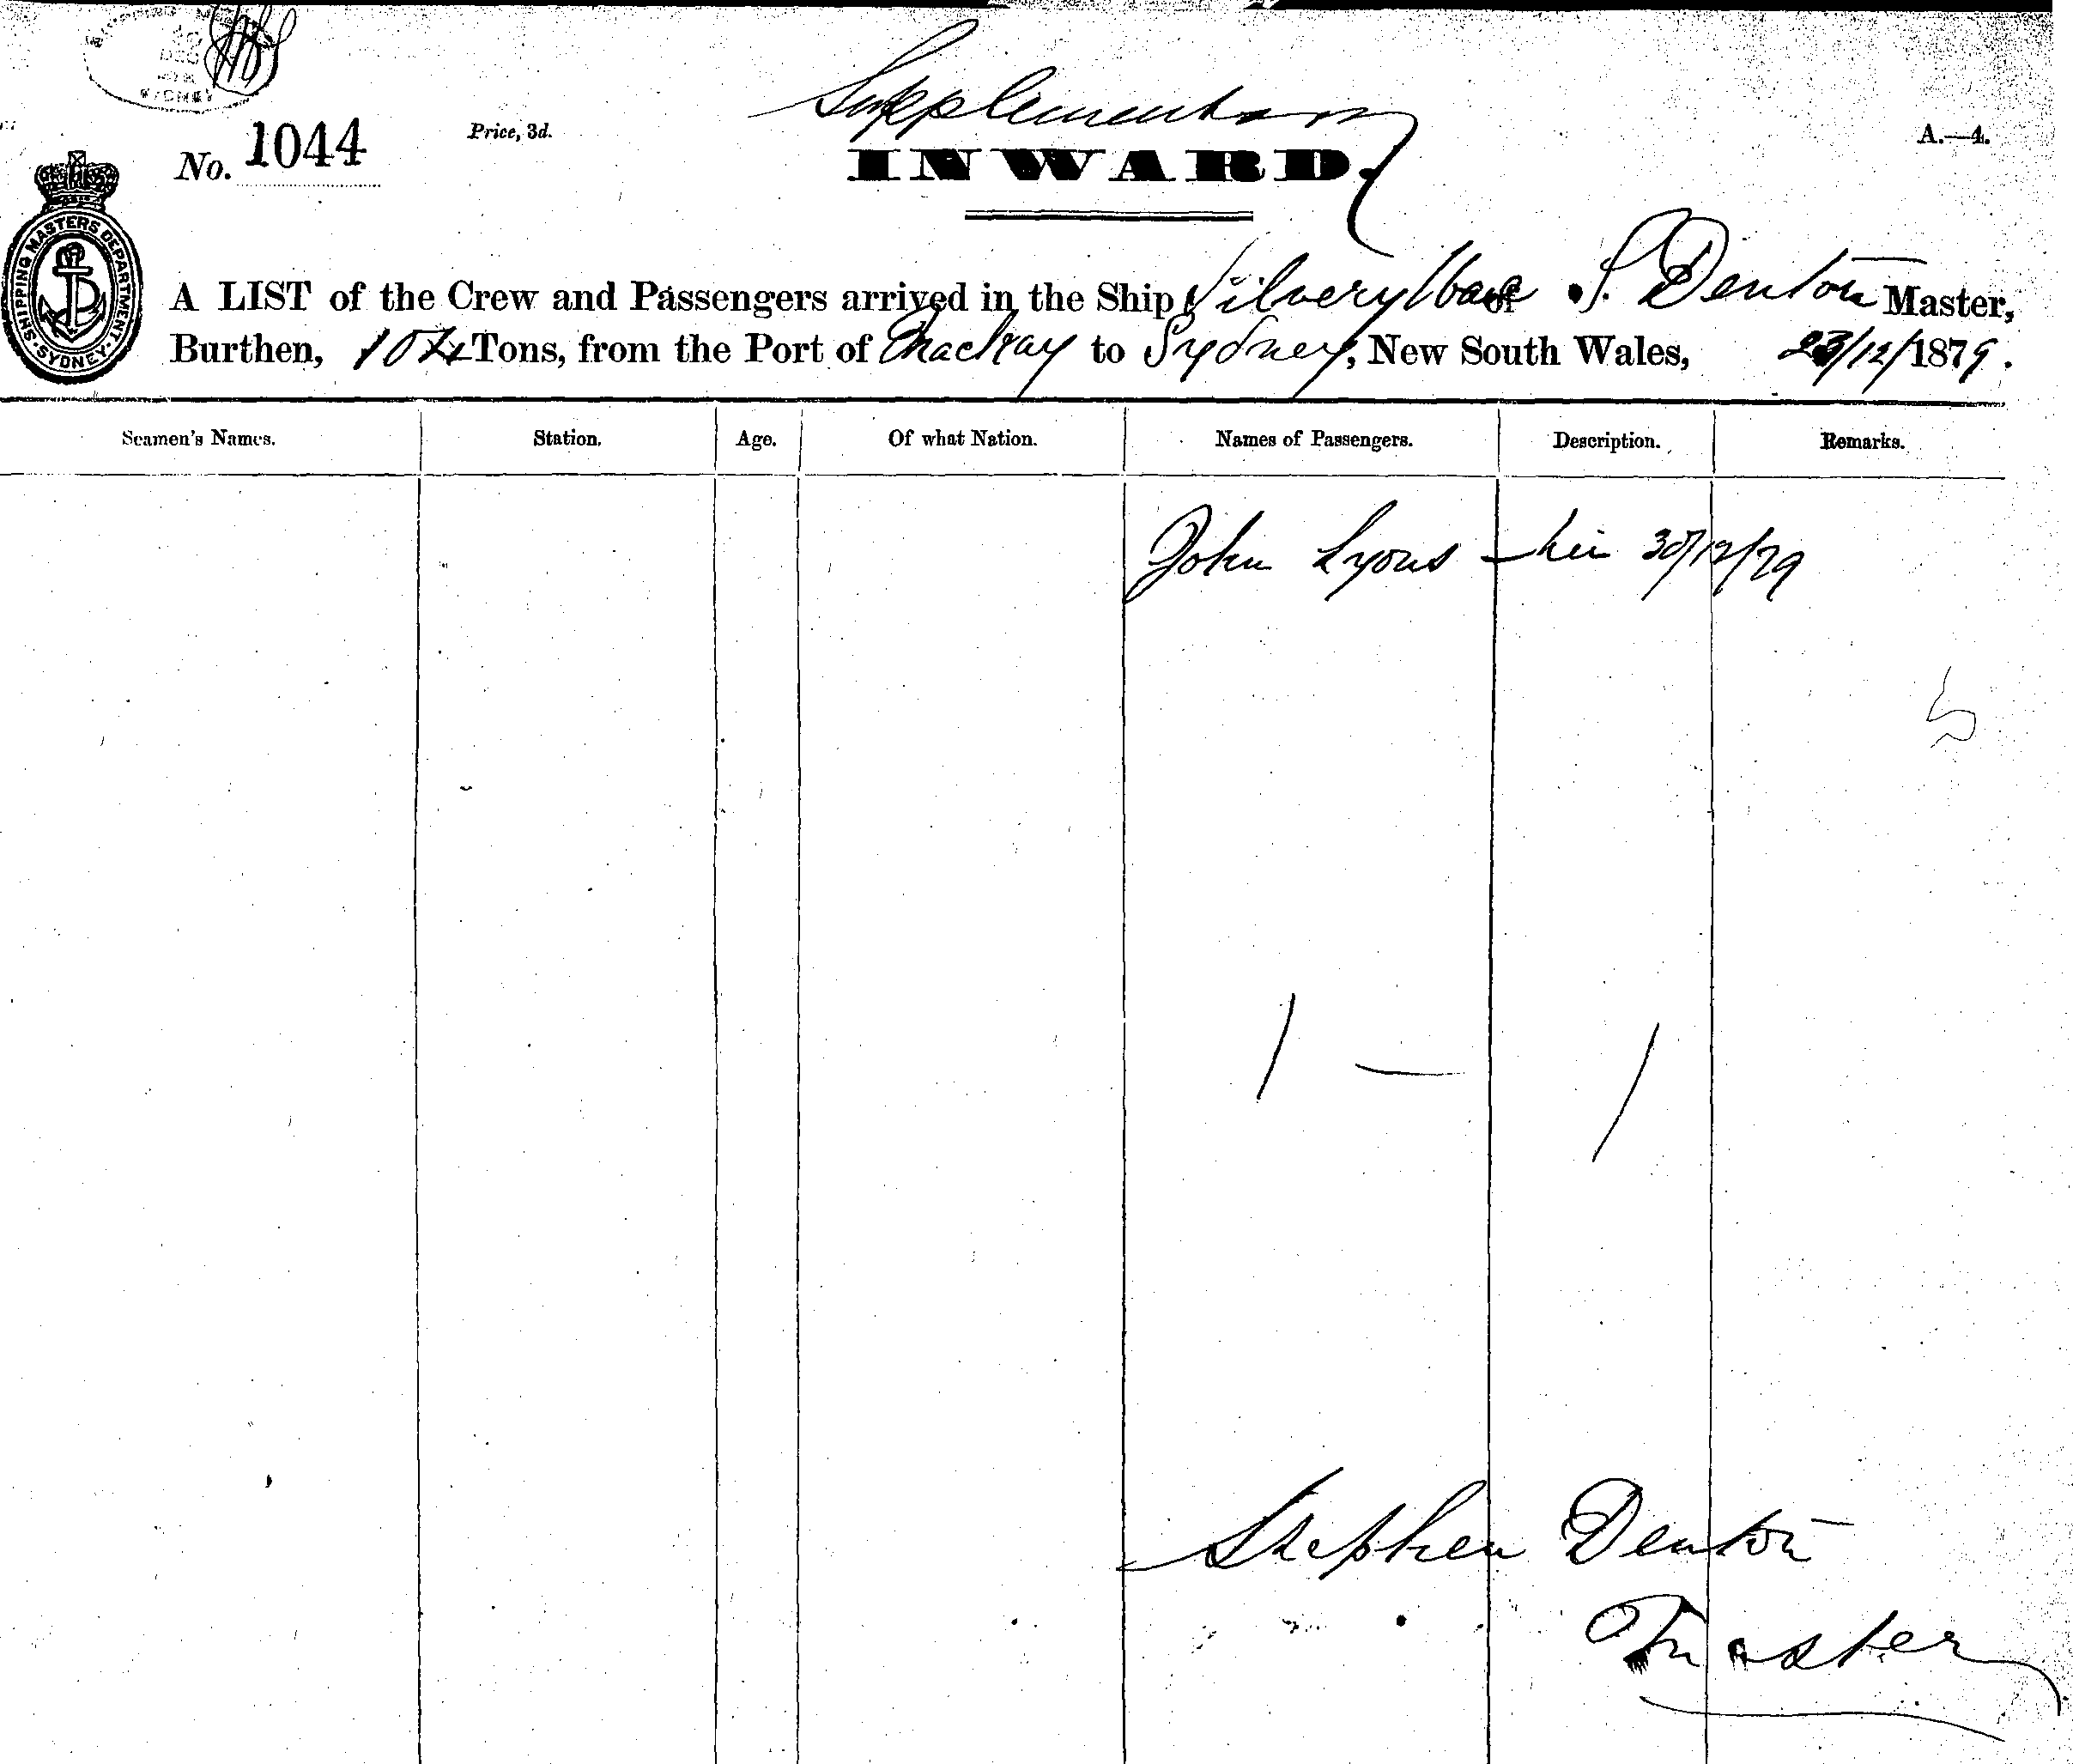 SYDNEY
Supplementary
No. 1044
Price, 3d.
A.—4.
INWARD.
SHIPPING MASTERS DEPARTMENT
SYDNEY
A LIST of the Crew and Passengers arrived in the Ship Silvery Wave S. Denton Master,
Burthen, 104 Tons, from the Port of Mackay to Sydney, New South Wales, 23/12/1879.
Seamen's Names. Station. Age. Of what Nation. Names of Passengers. Description. Remarks.
John Lyons 30/12/79
1 — 1
Stephen Denton
Master